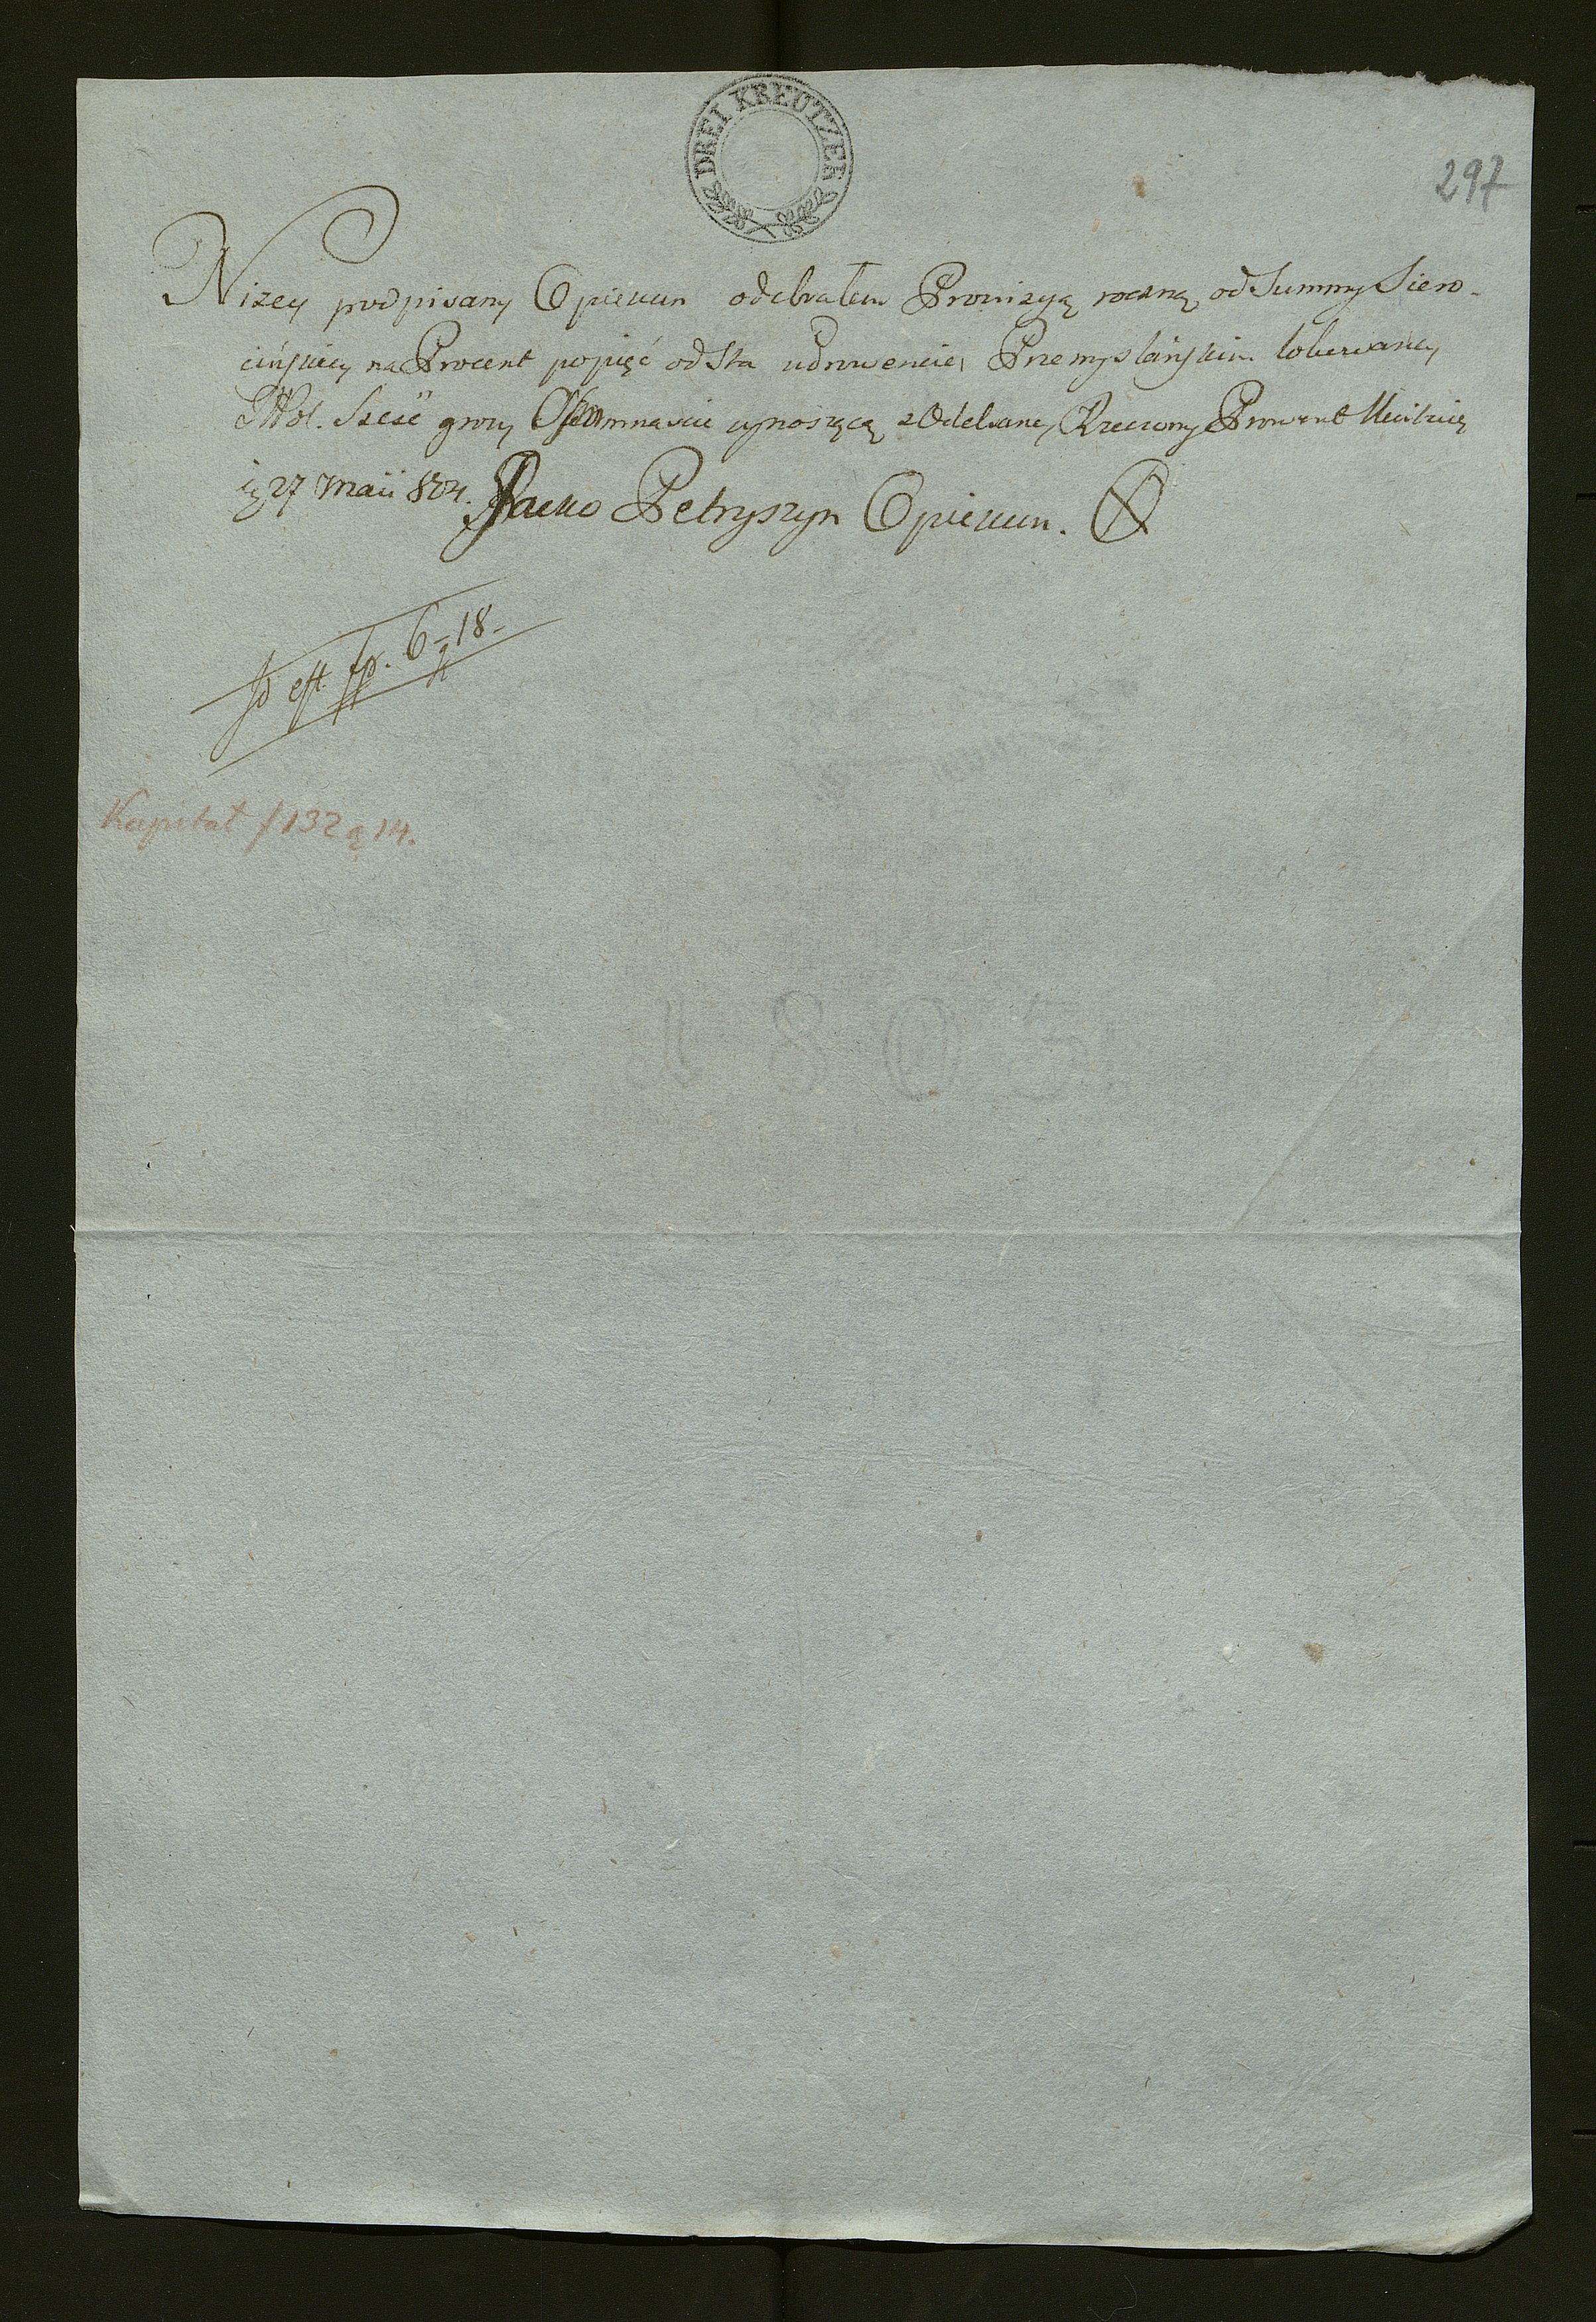 DREI KREUTZER
297
Nizey podpisany Opiekun odebrałem Prowizyą roczną od Summy Siero-
cińskiey na Procent po pięć od Sta w Prowencie Przemyslańskim lokowaney
Zło{t}. Sześć groszy Osiemnascie wynoszącą z Odebraney Rzeczony Prowent Kwituię
27 Maii 804. Jacko Petryszyn Opiekun.
Id est fp. 6 - 18 -
Kapitał f 132 g 14.